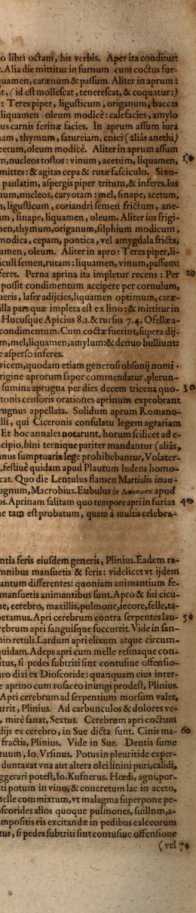 o libri octaui, his verbis. Aper ita conditur:
t. Alia die mittitur in furnum cum coctus fuerit
liquamen, carœnum & passum. Aliter in aprum:
t, (id est mollescat, tenerescat, & coquatur:)
: Teres piper, ligusticum, origanum, baccas
liquamen oleum modicè: calefacies, amylo
us carnis ferinæ facies. In aprum assum iura
am, thymum, satureiam, cnici (aliàs anethi)
cetum, oleum modicè. Aliter in aprum assum
m, nucleos tostos: vinum, acetum, liquamen,
mittes: & agitas cepa & rutæ fasciculo. Sin
paulatim, aspergis piper tritum, & inferes. Ius
num, nucleos, caryotam: mel, sinape, acetum,
, ligusticum, coriandri semen frictum, ane-
m, sinape, liquamen, oleum. Aliter ius frigi-
en, thymum, origanum, silphium modicum
modica, cepam, pontica, vel amygdala fricta,
amen, oleum. Aliter in apro: Teres piper, li-
culi semen, rutam: liquamen, vinum, passum:
feres. Perna aprina ita impletur recens: Per 20
possit condimentum accipere per cornulum,
aeris, laser adijcies, liquamen optimum,
lla parsque impleta est ex lino: & mittitur in
Hucusque Apicius 8.1. & rursus 7.4. Ofellæ a-
condimentum. Cum coctæ fuerint, supera dij-
m, mel, liquamen, amylum: & denuo bulliunt
e asperso inferes.
ricem, quodam etiam generosi obsonij nomi-
rigine aprorum saper commendatur, glerun-
summa aprugna per dies decem tricena quo- 30
tonis censoris orationes aprinum exprobrant
rugnus appellata. Solidum aprum Romano-
illi, qui Ciceronis consulatu legem agrariam
Et hoc annales notarunt, horum scilicet ad e-
cipio, bini terníque pariter mandantur (aliàs,
nus sumptuaris lege prohibebantur, Volater-
, festiuè quidam apud Plautum ludens homo-
cat. Quo die Lentulus flamen Martialis inau-
rugnum, Macrobius. Eubulus in apud
os. Aprinam salitam quo tempore apri in furias 40
ne tam est probatum, quam à multis celebra-
ntia feris eiusdem generis, Plinius. Eadem ra-
nnibus mansuetis & feris: videlicet vt ijdem
antum differentes: quoniam animantium fe-
mansuetis animantibus sunt. Apro & sui cicu-
ne, cerebro, maxillis, pulmone, iecore, felle, ta-
petamus. Apri cerebrum contra serpentes lau- 50
rebrum apri sanguisque succurrit. Vide in san-
bin retuli. Lardum apri elixum atque circum-
quidam. Adeps apri cum melle resinaque con-
itus, si pedes subtriti sint contusiue offensio-
ro dixi ex Dioscoride: quanquam eius inter-
e aprino cum rosaceo inungi prodest, Plinius.
Apri cerebrum ad serpentium morsum valet,
urrit, Plinius. Ad carbunculos & dolores ve-
, mirè sanat, Sextus. Cerebrum apri coctum
dijs ex cerebro, in Sue dicta sunt. Cinis ma- 60
fractis, Plinius. Vide in Sue. Dentis sume
tuum, Io. Vrsinus. Potus in pleuritide exper-
duntaxat vna aut altera olei linini puri, calidi,
ggerari potest, Io. Kufnerus. Hœdi, agni, por-
ti potum in vino, & concretum lac in aceto,
telle commixtum, vt malagma superpone pe-
scorides alios quoque pulmones, suillum, a-
mpositis eis excitandæ in pedibus calceorum
tus, si pedes subtriti sint contusiue offensione
(vel 70